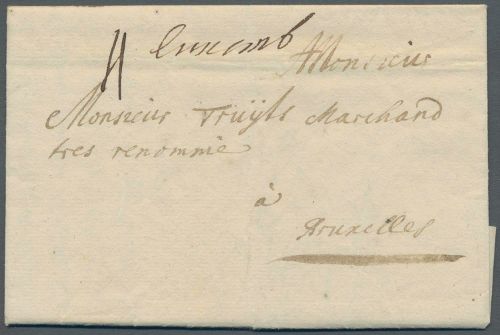 4 luxemb
A Monsieur
Monsieur Truÿts Marchand
tres renommé
à
Bruxelles